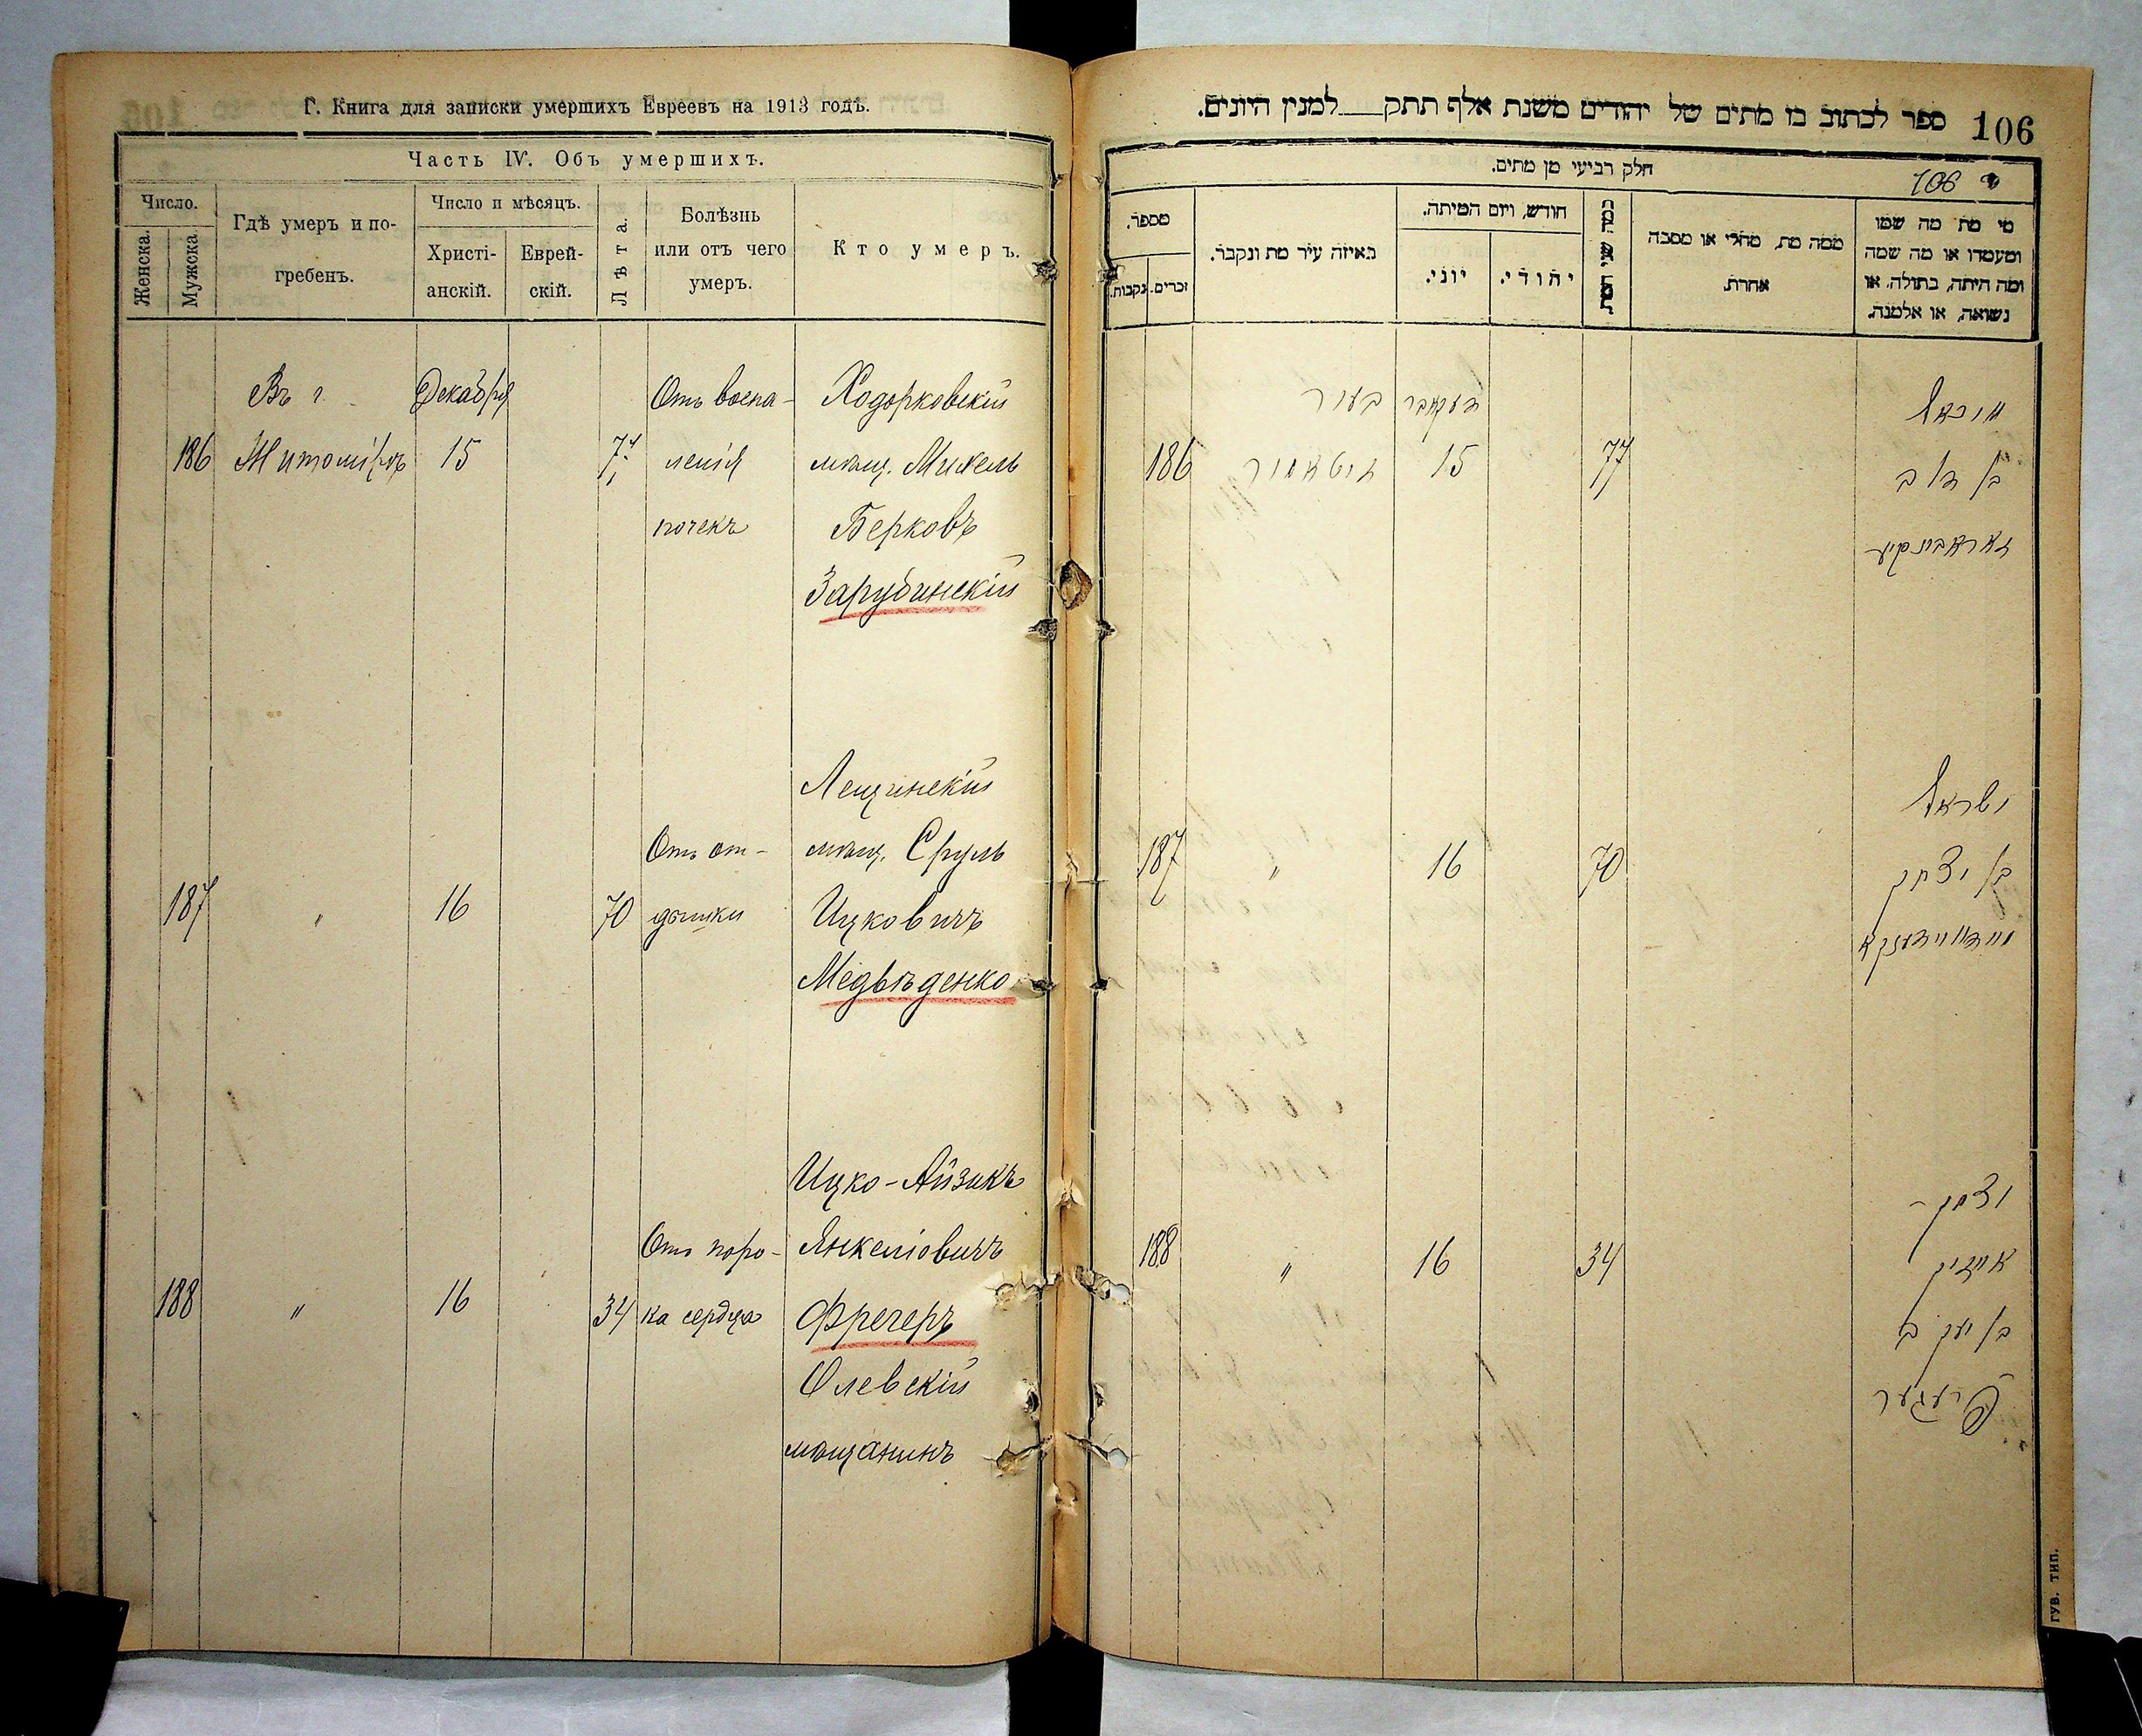 Г. Книга для записки умершихъ Евреевъ на 1913 годъ.
Часть IV. Объ умершихъ.
Число.
Женска.
Мужска.
Гдѣ умеръ и по-
гребенъ.
Число и мѣсяцъ.
Христі-
анскій.
Еврей-
скій.
Лѣта.
Болѣзнь
или отъ чего
умеръ.
Кто умеръ.
Въ г.
Декабря
Отъ воспа-
Ходорковскій
186
Житомірѣ
15
77
ленія
мѣщ. Михель
почекъ
Берковъ
Зарубинскій
Лещинскій
Отъ от-
мѣщ. Сруль
187
"
16
70
дышки
Ицковичъ
Медвѣденко
Ицко-Айзикъ
Отъ поро-
Янкеліовичъ
188
"
16
34
ка сердца
Фрегеръ
Олевскій
мѣщанинъ
ספר לכתוב בו מתים של יהודים משנת אלף תתק למנין היונים.
106
חלק רביעי מן מתים.
106
מספר.
זכרים.
נקבות.
באיזה עיר מת ונקבר.
חודש, ויום המיתה.
יוני.
יהודי.
כמה שני המת
ממה מת, מחלי או מסבה
אחרת.
מי מת מה שמו
ומעמדו או מה שמה
ומה היתה, בתולה, או
נשואה, או אלמנה.
בעיר
דעקאבר
מיכאל
186
זיטאמיר
15
77
בן דוב
זארובינסקי
ישראל
187
"
16
70
בן יצחק
מעדוועדענקא
יצחק-
188
"
16
34
אייזיק
בן יעקב
פרעגער
ГУБ. ТИП.